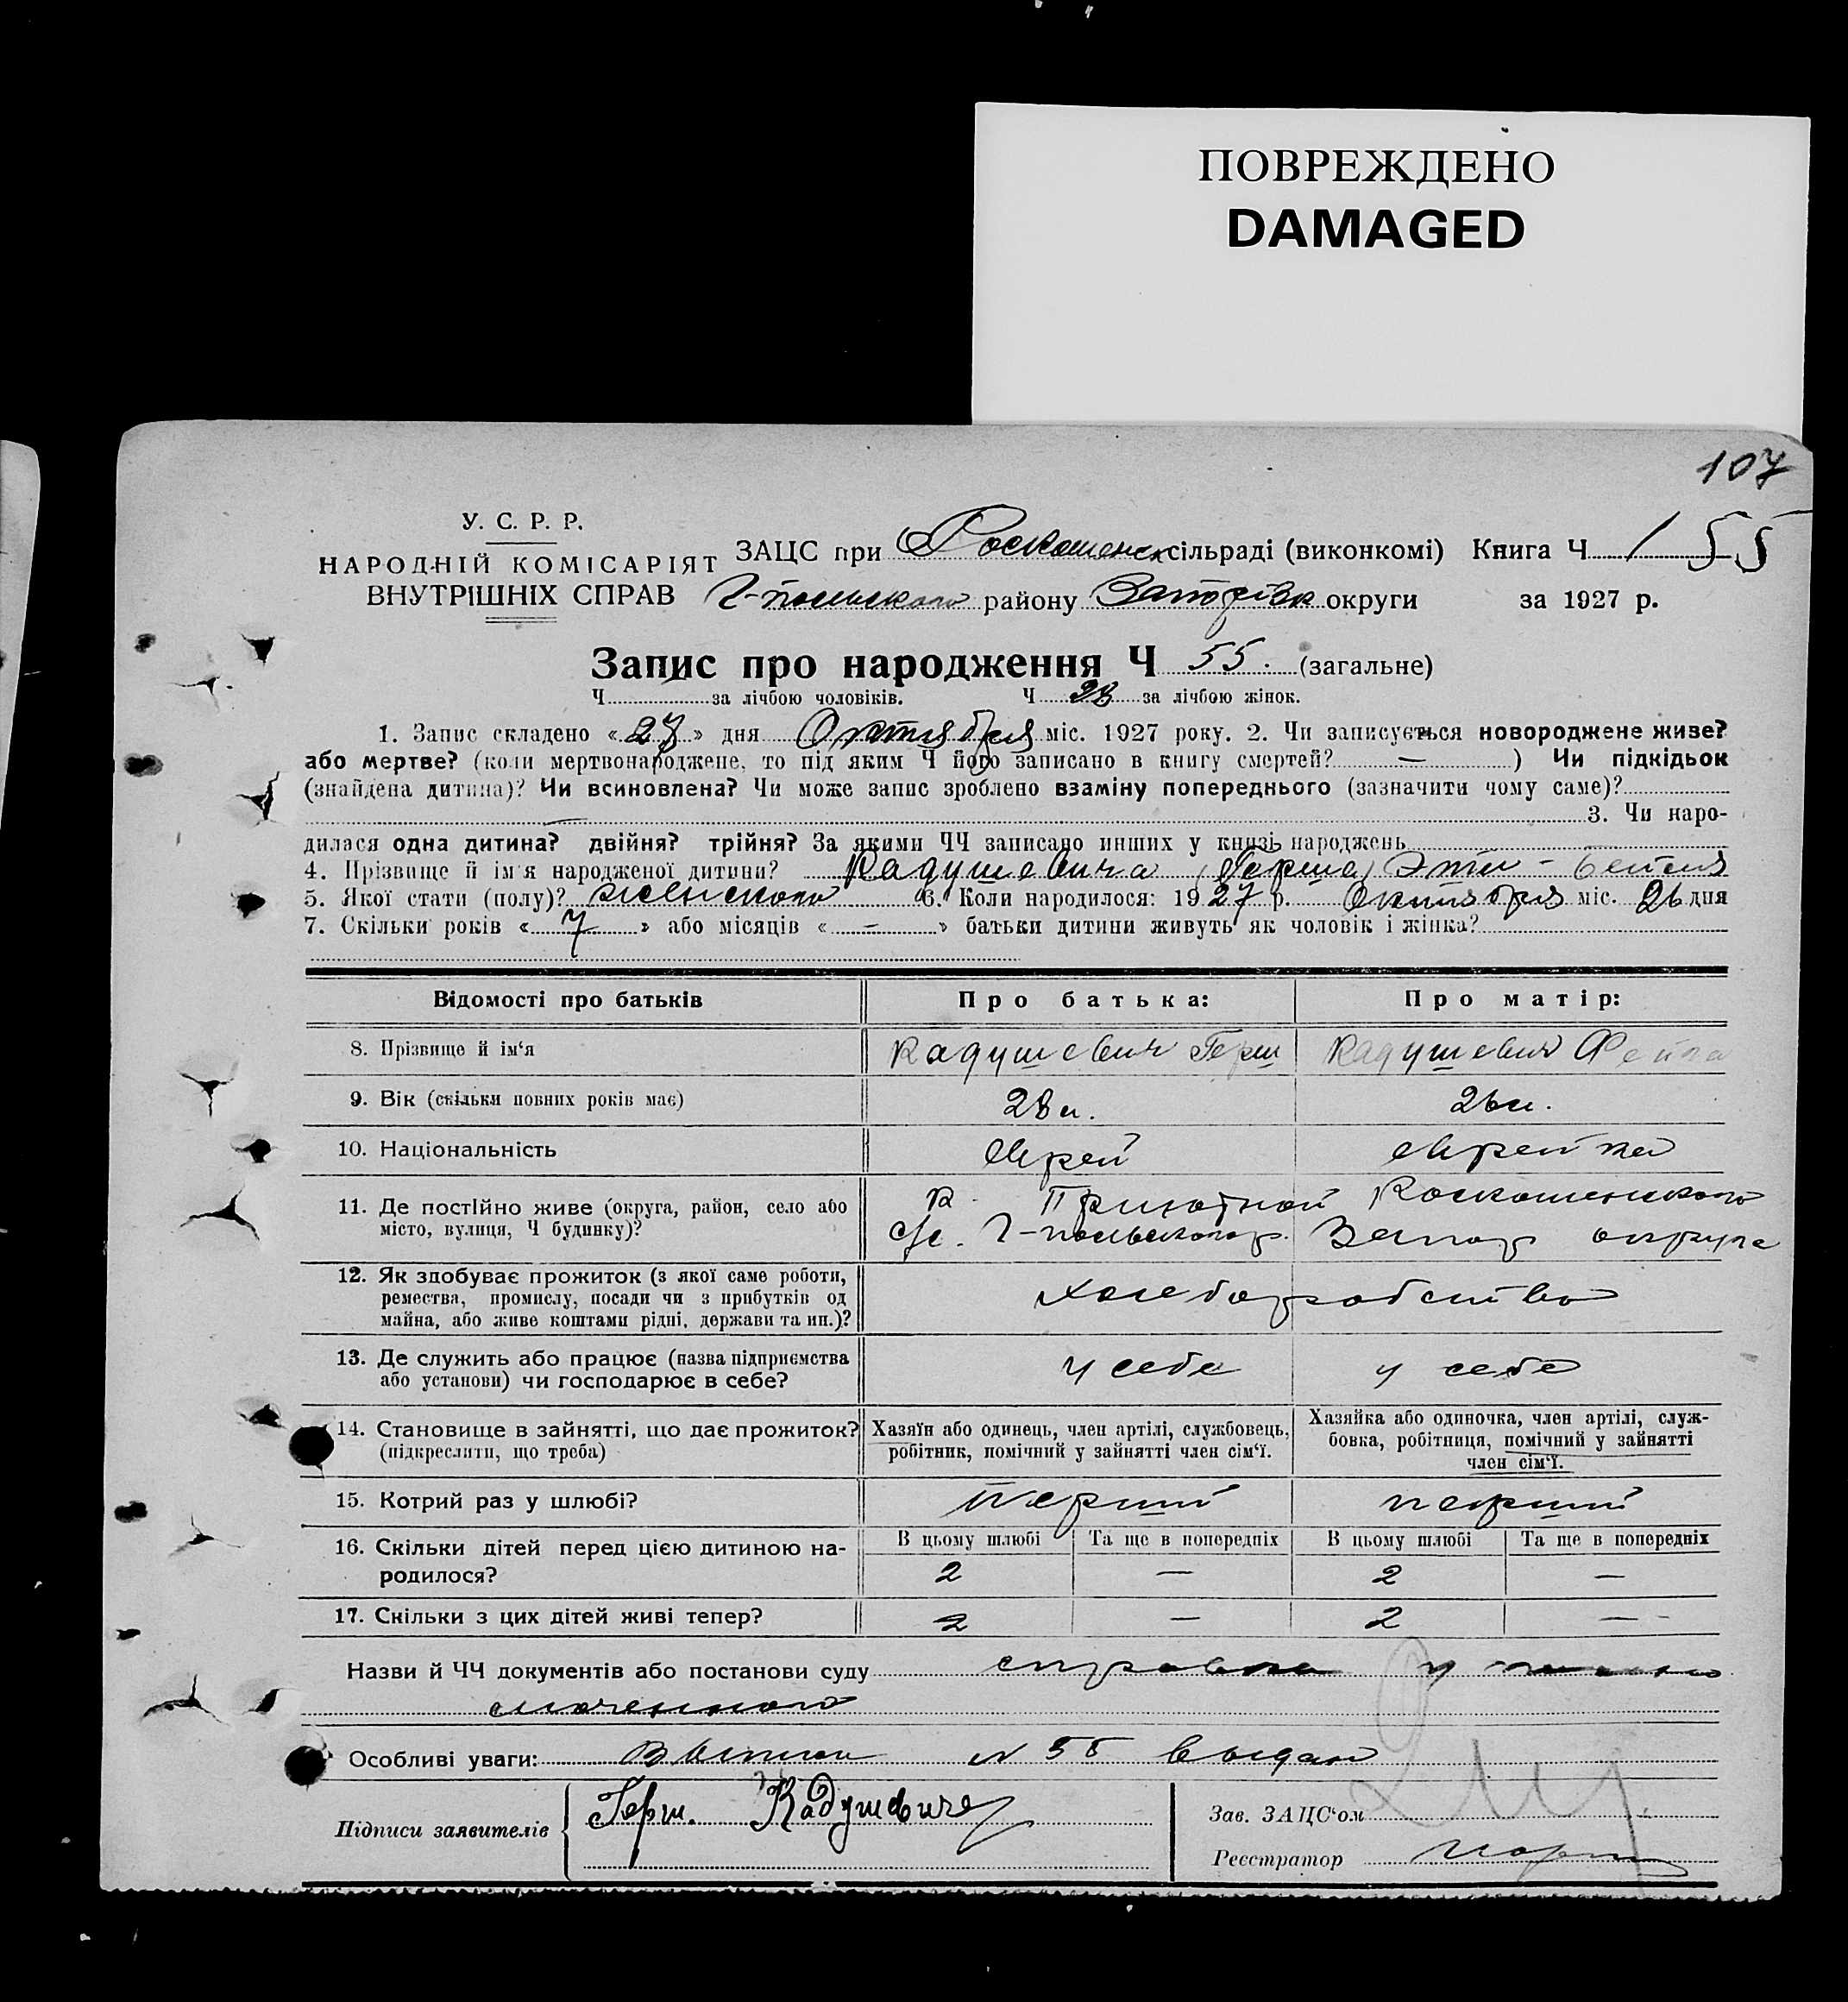 ПОВРЕЖДЕНО
DAMAGED
107
У. С. Р. Р.
НАРОДНІЙ КОМІСАРІЯТ
ВНУТРІШНІХ СПРАВ
ЗАЦС при Роскошенск сільраді (виконкомі) Книга Ч 1 55
Г-польского району Запоріжк округи за 1927 р.
Запис про народження Ч 55. (загальне)
Ч за лічбою чоловіків. Ч 28 за лічбою жінок.
1. Запис складено «27» дня Октября міс. 1927 року. 2. Чи записується новороджене живе?
або мертве? (коли мертвонароджене, то під яким Ч його записано в книгу смертей? — ) Чи підкідьок
(знайдена дитина)? Чи всиновлена? Чи може запис зроблено взаміну попереднього (зазначити чому саме)?
3. Чи наро-
дилася одна дитина? двійня? трійня? За якими ЧЧ записано инших у книзі народжень
4. Прізвище й ім'я народженої дитини? Кадушевича (Герша) Эти-Бейля
5. Якої стати (полу)? женского 6. Коли народилося: 1927 р. Октября міс. 26 дня
7. Скільки років « 7 » або місяців « — » батьки дитини живуть як чоловік і жінка?
Відомості про батьків Про батька: Про матір:
8. Прізвище й ім'я Кадушевич Герш Кадушевич Фейга
9. Вік (скільки повних років має) 28 л. 26 л.
10. Національність еврей еврейка
11. Де постійно живе (округа, район, село або К. Приютной Роскошенского
місто, вулиця, Ч будинку)? с/с. Г-польского р. Запор округа
12. Як здобуває прожиток (з якої саме роботи,
ремества, промислу, посади чи з прибутків од хлеборобство
майна, або живе коштами рідні, держави та ин.)?
13. Де служить або працює (назва підприємства у себе у себе
або установи) чи господарює в себе?
14. Становище в зайнятті, що дає прожиток? Хазяїн або одинець, член артілі, службовець, Хазяйка або одиночка, член артілі, служ-
(підкреслити, що треба) робітник, помічний у зайнятті член сім'ї. бовка, робітниця, помічний у зайнятті
член сім'ї.
15. Котрий раз у шлюбі? перший перший
16. Скільки дітей перед цією дитиною на- В цьому шлюбі Та ще в попередніх В цьому шлюбі Та ще в попередніх
родилося? 2 — 2 —
17. Скільки з цих дітей живі тепер? 2 — 2 —
Назви й ЧЧ документів або постанови суду справка уполно
моченного
Особливі уваги: Выпись № 55 выдан
Підписи заявителів Герш. Кадушевич
Зав. ЗАЦС'ом
Реєстратор